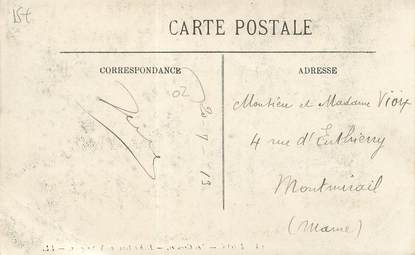 15t
CARTE POSTALE
CORRESPONDANCE
ADRESSE
02
20 7 13
Monsieur et Madame Vioix
4 rue d'Enthierry
Montmirail
(Marne)